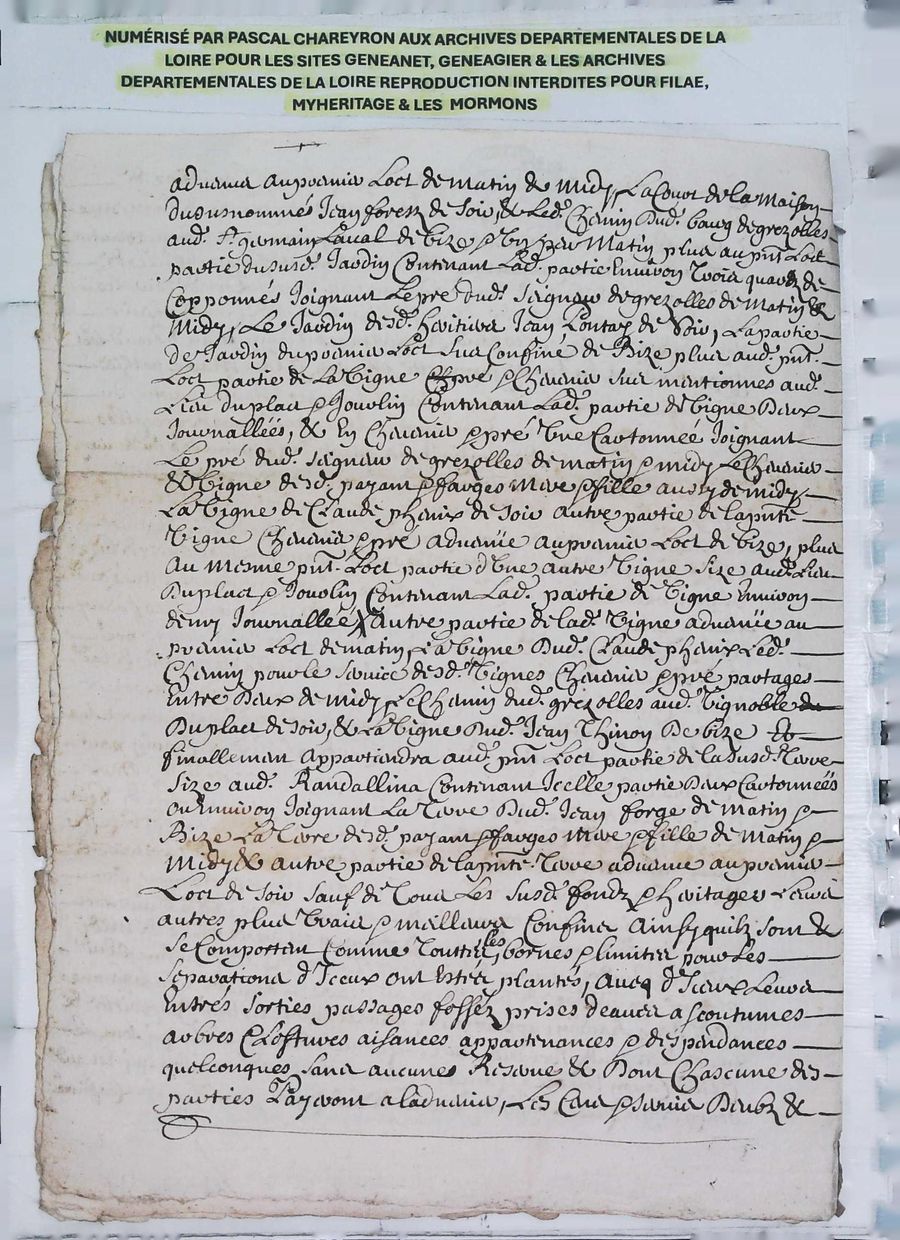 NUMÉRISÉ PAR PASCAL CHAREYRON AUX ARCHIVES DEPARTEMENTALES DE LA
LOIRE POUR LES SITES GENEANET, GENEAGIER & LES ARCHIVES
DEPARTEMENTALES DE LA LOIRE REPRODUCTION INTERDITES POUR FILAE,
MYHERITAGE & LES MORMONS
advenue au premier Loct de matin & midy, La Cour de la maison
dususnommés Jean forest de soir, & Led. Chemin dud. bourg de grezolles
aud. St germain Laval de bize & En matin plus au pnt Loct
partie du susd. Jardin Contenant Lad. partie Environ Trois quartz de
Copponnés Joignant Le pré dud. seigneur de grezolles de matin &
Midy, Le Jardin desd. heritiers Jean de soir, La partie
de Jardin du premier Loct sus Confiné de Bize plus aud. pnt
Loct partie de La Vigne pré & Chenevier sus mentionnes aud.
Lieu du place & Jouvlin Contenant Lad. partie de Vigne Deux
Journallées, & En Chenevier & pré Une Cartonneé Joignant
Le pré dud. seigneur de grezolles de matin & midy Le Chenevier
& Vigne desd. payant & farges mere & fille aussy de midy
La Vigne de Claude phenix de soir autre partie de lapnte
Vigne Chenevier & pré advenüe au premier Loct de bize, plus
Au mesme pnt. Loct partie d'Une autre Vigne size aud. Lieu
Duplact & Jouvlin Contenant Lad. partie de Vigne Environ
demy Journalleé autre partie de lad. Vigne advenüe au
premier Loct de matin, La Vigne Dud. Claude phenix Led.
Chemin pour le service desd. Vignes Chenevier & pré partages
Entre Deux de midy, Le Chemin dud. grezolles aud. Vignoble
Duplact de soir, & La Vigne Dud. Jean Thinon De bize &
finallement appartiendra aud. pnt Loct partie de la susd. Terre
size aud. Randallina Contenant Icelle partie Deux Cartonneés
ou Environ Joignant La Terre Dud. Jean forge de matin &
Bize La Terre desd. payant & farges Mere & fille de matin &
Midy & autre partie de lapnte Terre advenue au premier
Loct de soir sauf de Tous Les susd. fondz & heritages Leurs
autres plus Vrais & meilleurs Confins Ainsy quilz sont &
se Comportent Comme Toutte les bornes & limites pour Les
separations d'Iceux ont Estés plantés, avec d'Iceux Leurs
Entrés sorties passages fossez prises deaues ascoutumes
arbres Closttures aisances appartenances & despendances
quelconques, sans aucunes Reserve & Dont Chascune des
parties Payeront a ladvenir, Les Cens & servis Deubz &